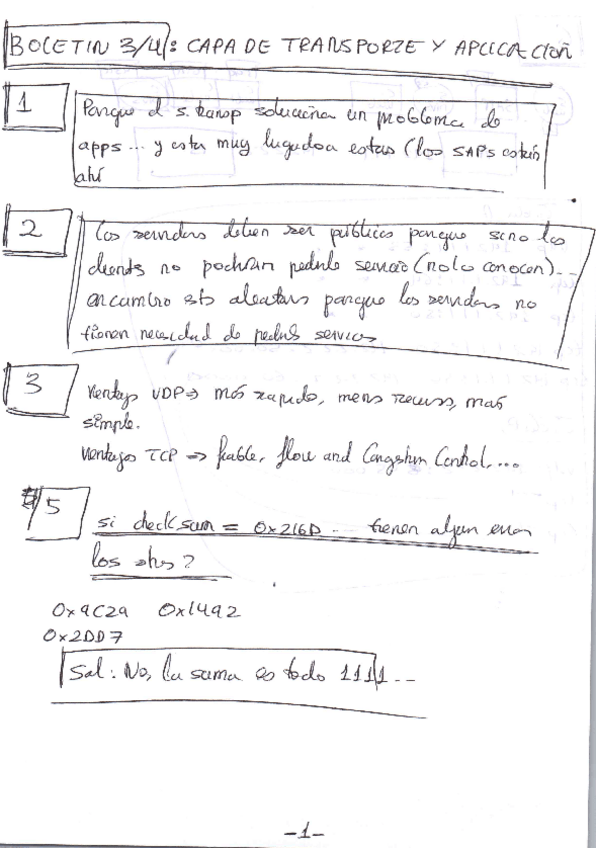 BOLETIN 3/4: CAPA DE TRANSPORTE Y APLICACIÓN
1
Porque el s. transp soluciona un problema de
apps... y esta muy lugadoa estas (los SAPs están
ahí
2
Los servidors deben ser públicos porque sino los
clients no podrían pedirle servicio (no lo conocen)...
en cambio ests aleators porque los servidors no
tienen necesidad de pedirls servicios
3
Ventajs UDP => más rapido, mens recurss, mas
simple.
Ventajas TCP => fiable, flow and Congstion Control,...
5
si checksum = 0x216D ... tienen algun error
los otrs?
0x9C29 0x1492
0x2DD7
Sol: No, la suma es todo 1111...
-1-